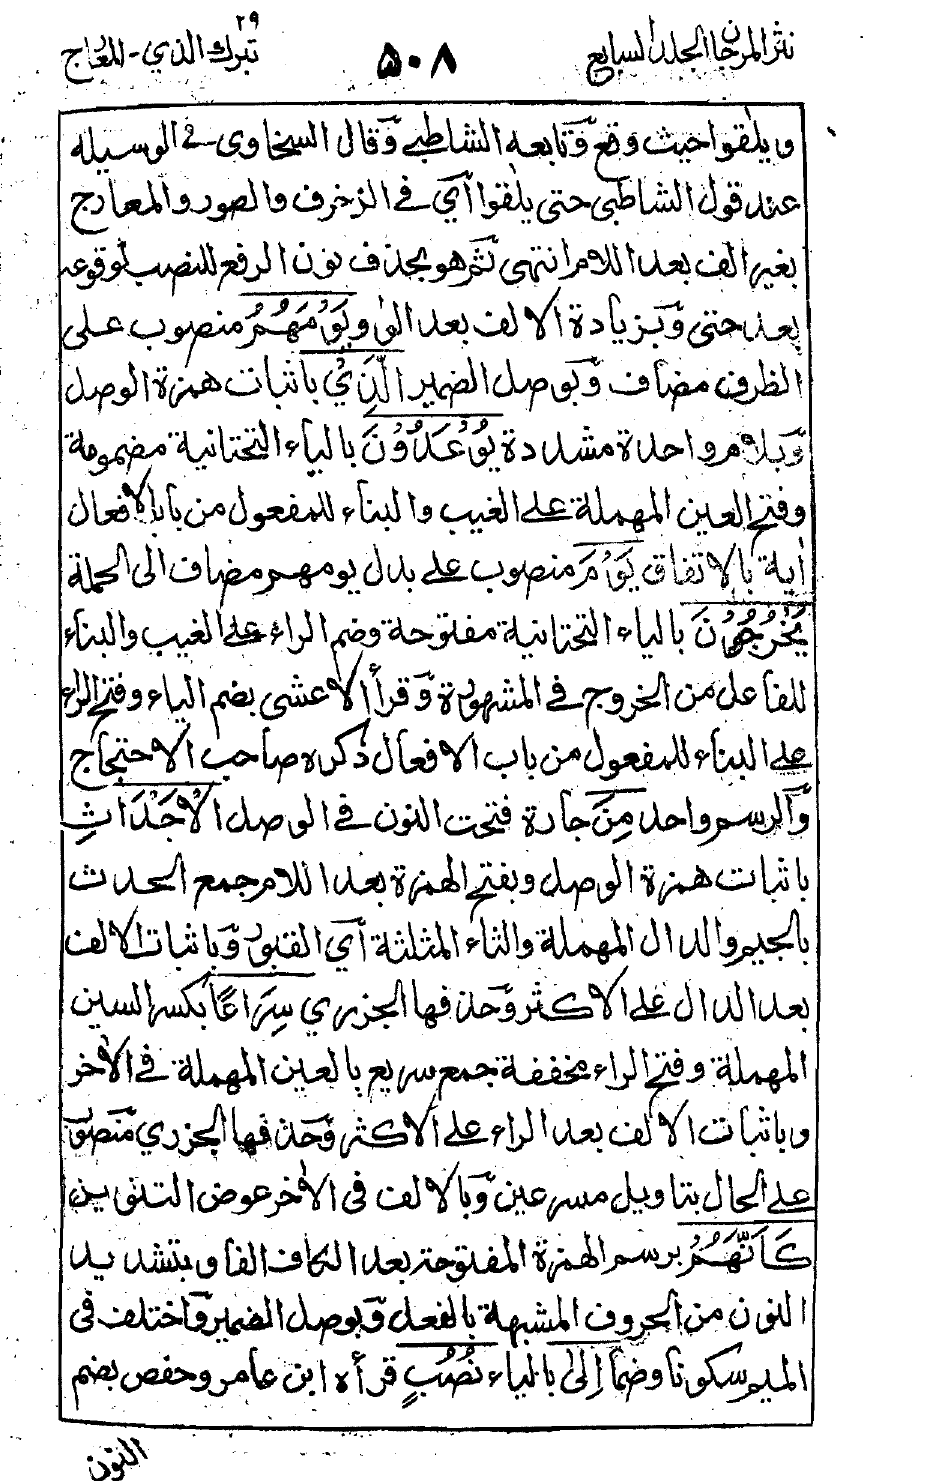 نثر المرجان المجلد السابع ۵۰۸ تبرك الذي - المعارج ۲۹
ويلقوا حيث وقع وتابعه الشاطبي وقال السخاوى في الوسيله
عند قول الشاطبى حتى يلقوا أي في الزخرف والطور والمعارج
بغير الف بعد اللام انتهى ثم هو بحذف نون الرفع للنصب لوقوعه
بعد حتى وبزيادة الالف بعد الواو يَوْمَهُمُ منصوب على
الظرف مضاف وبوصل الضمير الَّذِيْ باثبات همزة الوصل
وبلام واحدة مشددة يُوْعَدُوْنَ بالياء التحتانية مضمومة
وفتح العين المهملة على الغيب والبناء للمفعول من باب الافعال
أية بالاتفاق يَوْمَ منصوب على بدل يومهم مضاف الى الجملة
يَخْرُجُوْنَ بالياء التحتانية مفتوحة وضم الراء على الغيب والبناء
للفاعل من الخروج في المشهورة وقرأ الاعشى بضم الياء وفتح الراء
على البناء للمفعول من باب الافعال ذكره صاحب الاحتجاج
والرسم واحد مِنَ جارة فتحت النون في الوصل الْاَجْدَاثِ
باثبات همزة الوصل وبفتح الهمزة بعد اللام جمع الجدث
بالجيم والدال المهملة والثاء المثلثة أي القبور وباثبات الالف
بعد الدال على الاكثر وحذفها الجزري سِرَاعًا بكسر السين
المهملة وفتح الراء مخففة جمع سريع بالعين المهملة في الأخر
وباثبات الالف بعد الراء على الاكثر وحذفها الجزري منصوب
على الحال بتاويل مسرعين وبالالف فى الأخر عوض التنوين
كَاَنَّهُمْ برسم الهمزة المفتوحة بعد الكاف الفا وبتشديد
النون من الحروف المشبهة بالفعل وبوصل الضمير واختلف فى
الميم سكونا وضما اِلٰى بالياء نُصُبٍ قرأه ابن عامر وحفص بضم
النون